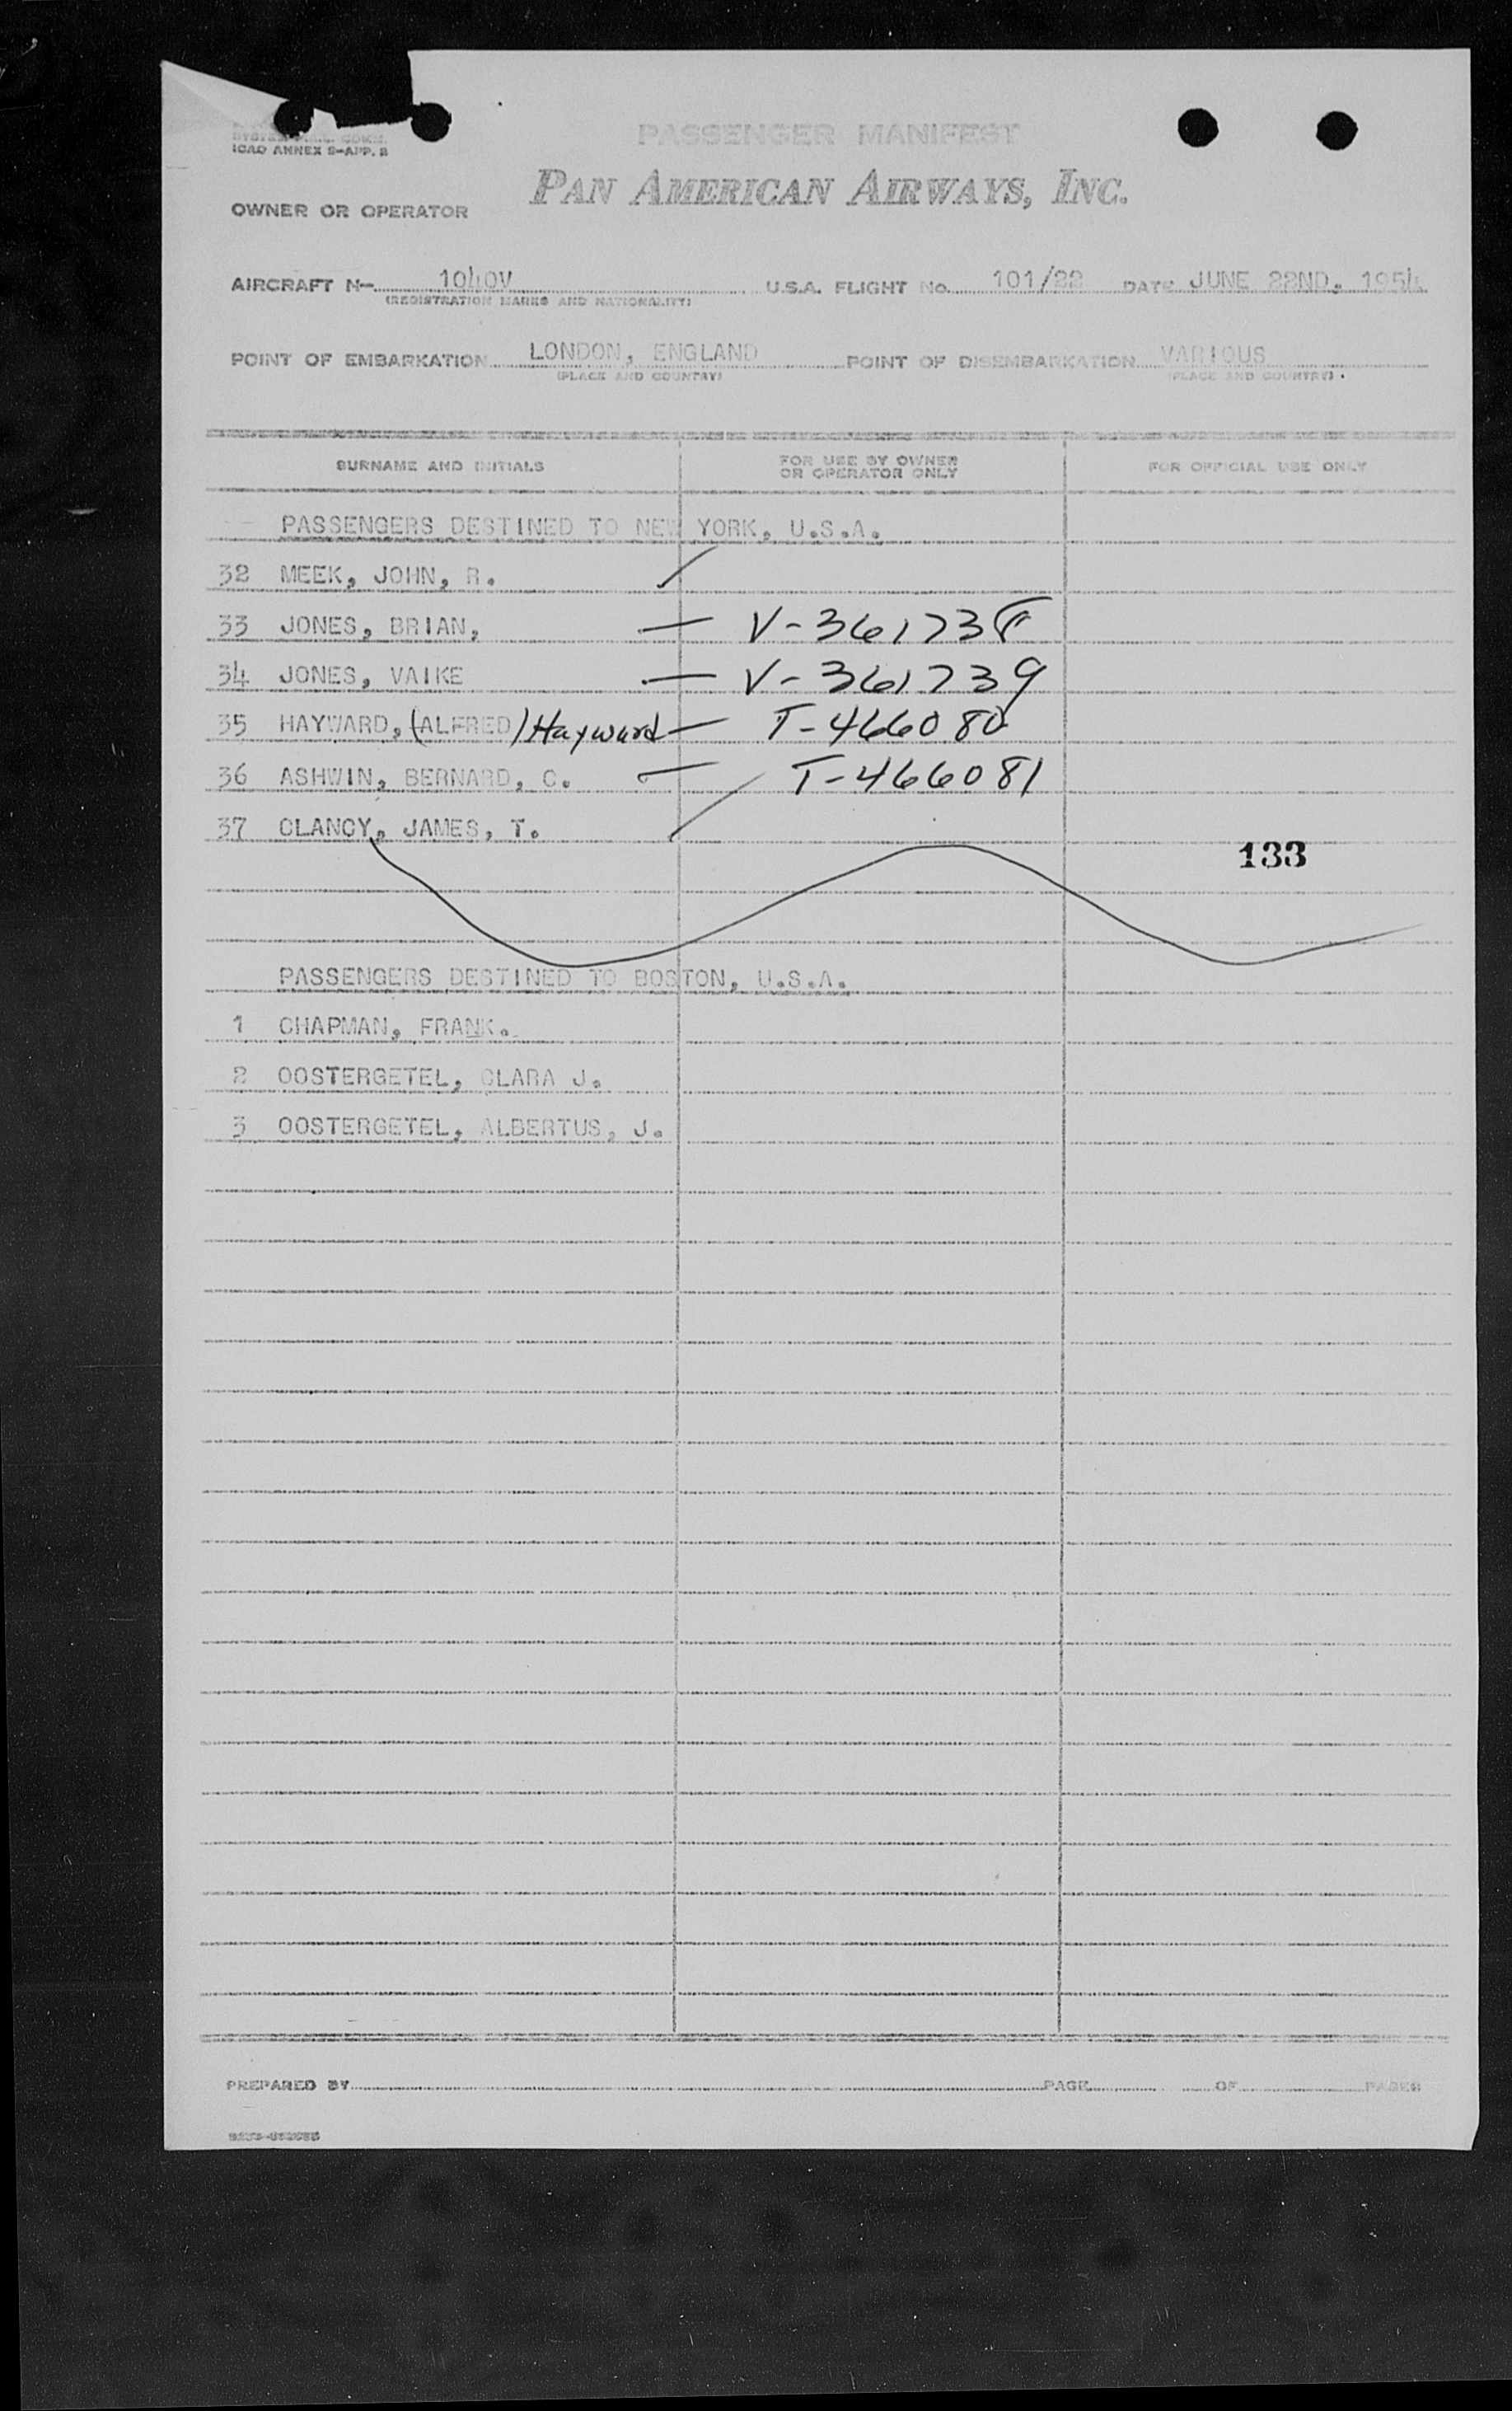 ICAO ANNEX 9-APP. 2
PASSENGER MANIFEST
PAN AMERICAN AIRWAYS, INC.
OWNER OR OPERATOR
AIRCRAFT N- 1040V U.S.A. FLIGHT No. 101/22 DATE JUNE 22ND, 1954
(REGISTRATION MARKS AND NATIONALITY)
POINT OF EMBARKATION LONDON, ENGLAND POINT OF DISEMBARKATION VARIOUS
(PLACE AND COUNTRY) (PLACE AND COUNTRY)
SURNAME AND INITIALS FOR USE BY OWNER OR OPERATOR ONLY FOR OFFICIAL USE ONLY
PASSENGERS DESTINED TO NEW YORK, U.S.A.
32 MEEK, JOHN, R. /
33 JONES, BRIAN, — V-361738
34 JONES, VAIKE — V-361739
35 HAYWARD, (ALFRED) Hayward — T-466080
36 ASHWIN, BERNARD, C. — T-466081
37 CLANCY, JAMES, T. /
133
PASSENGERS DESTINED TO BOSTON, U.S.A.
1 CHAPMAN, FRANK.
2 OOSTERGETEL, CLARA J.
3 OOSTERGETEL, ALBERTUS, J.
PREPARED BY PAGE OF PAGES